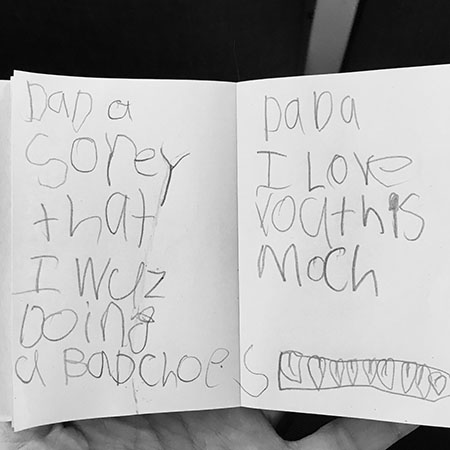 DaDa
Sorey
that
I wuz
Doing
a BaDchoes
DaDa
I Love
youthis
Moch